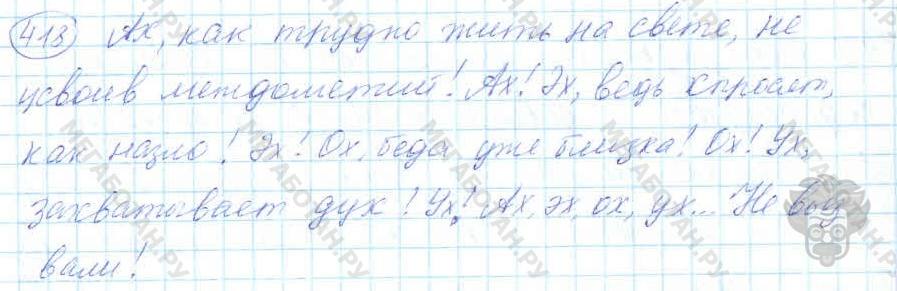 413 Ах, как трудно жить на свете, не
усвоив междометий! Ах! Эх, ведь спросят,
как назло! Эх! Ох, беда уже близка! Ох! Ух,
захватывает дух! Ух! Ах, эх, ох, ух... Не выз
вали!
МЕГАБОТАН.РУ